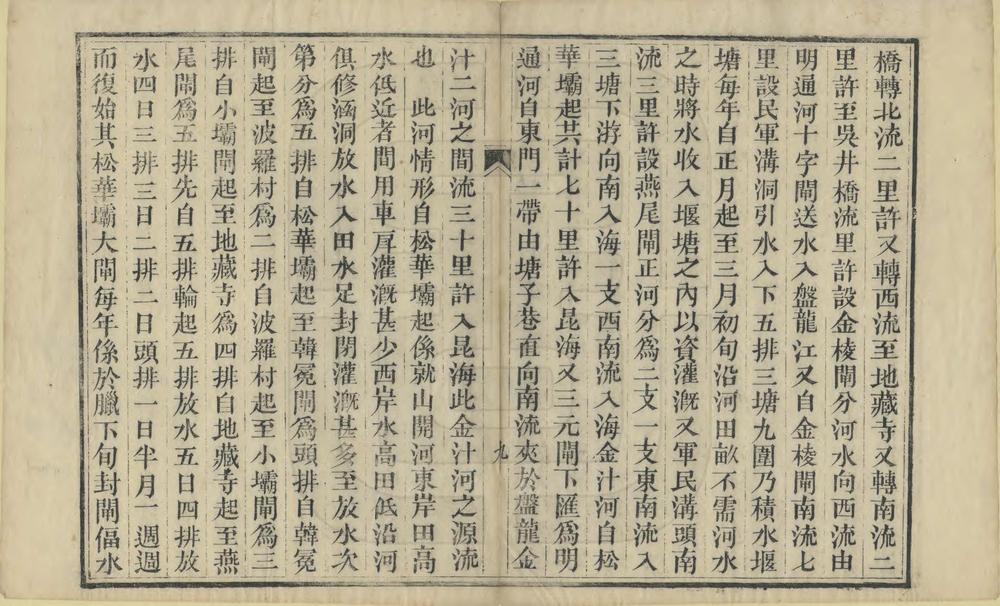 橋轉北流二里許又轉西流至地藏寺又轉南流二
里許至吳井橋流里許設金棱閘分河水向西流由
明通河十字閘送水入盤龍江又自金棱閘南流七
里設民軍溝洞引水入下五排三塘九圍乃積水堰
塘每年自正月起至三月初旬沿河田畝不需河水
之時將水收入堰塘之內以資灌溉又軍民溝頭南
流三里許設燕尾閘正河分為二支一支東南流入
三塘下游向南入海一支西南流入海金汁河自松
華壩起共計七十里許入昆海又三元閘下匯為明
通河自東門一帶由塘子巷直向南流夾於盤龍金
九
汁二河之間流三十里許入昆海此金汁河之源流
也　此河情形自松華壩起係就山開河東岸田高
水低近者間用車戽灌溉甚少西岸水高田低沿河
俱修涵洞放水入田水足封閉灌溉甚多至放水次
第分為五排自松華壩起至韓冕閘為頭排自韓冕
閘起至波羅村為二排自波羅村起至小壩閘為三
排自小壩閘起至地藏寺為四排自地藏寺起至燕
尾閘為五排先自五排輪起五排放水五日四排放
水四日三排三日二排二日頭排一日半月一週週
而復始其松華壩大閘每年係於臘下旬封閘偪水